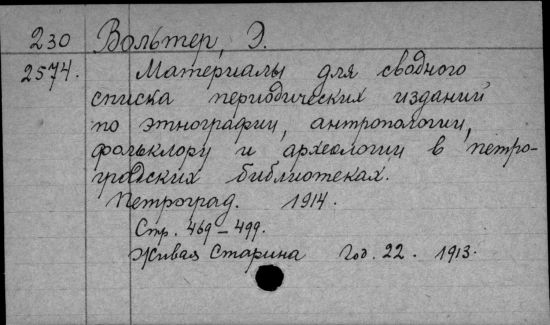 230 Вольтер, Э.
2574. Материалы для сводного
списка периодических изданий
по этнографии, антропологии,
фольклору и археологии в петро-
градских библиотеках.
Петроград. 1914.
Стр. 469-499.
Живая Старина Год. 22. 1913.